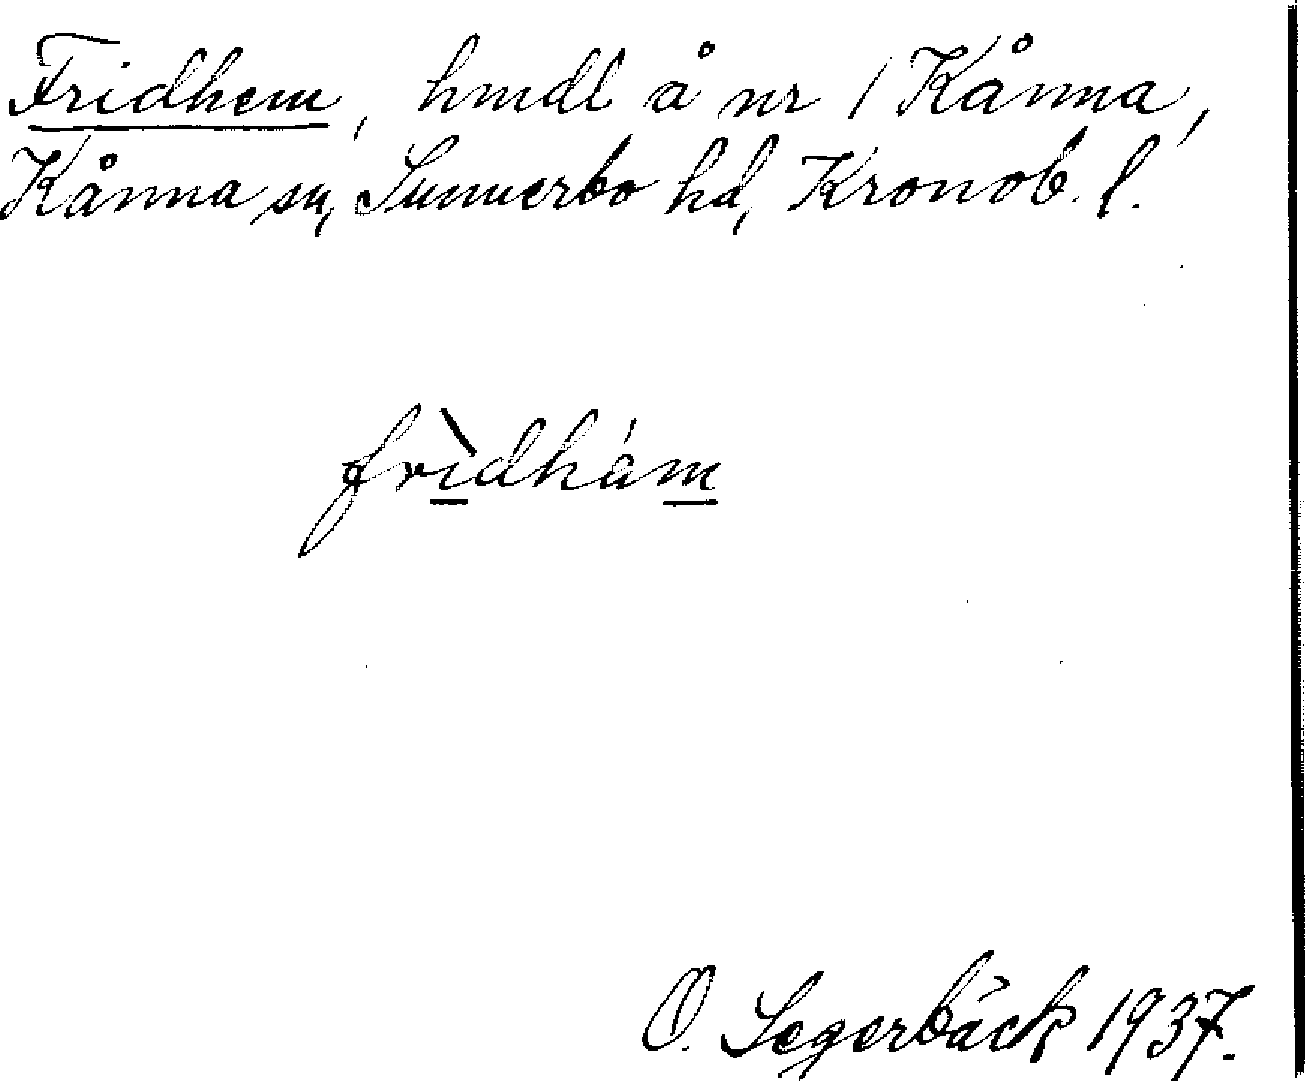 Fridhem, hmdl å nr 1 Kånna,
Kånna sn, Sunnerbo hd, Kronob. l.
frìdhám
O. Segerbäck 1937.